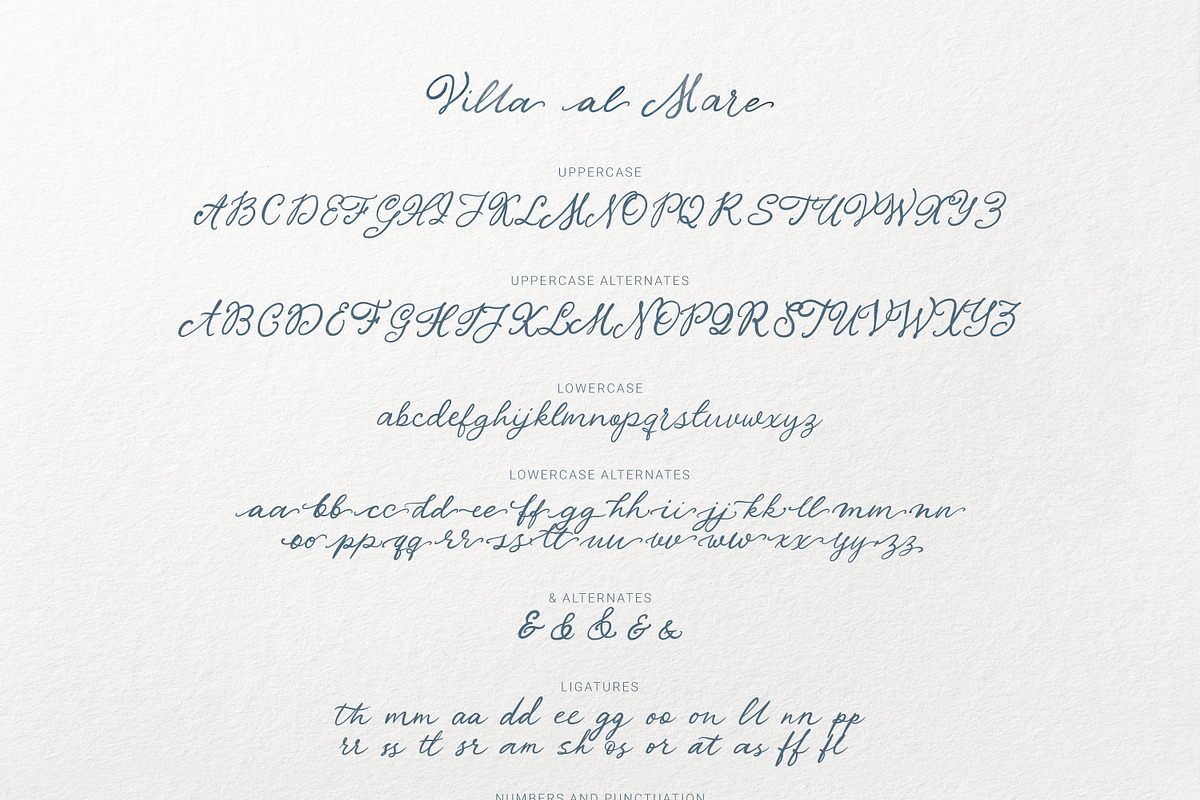 Villa al Mare
UPPERCASE
ABCDEFGHIJKLMNOPQRSTUVWXYZ
UPPERCASE ALTERNATES
ABCDEFGHIJKLMNOPQRSTUVWXYZ
LOWERCASE
abcdefghijklmnopqrstuvwxyz
LOWERCASE ALTERNATES
aa bb cc dd ee ff gg hh ii jj kk ll mm nn
oo pp qq rr ss tt uu vv ww xx yy zz
& ALTERNATES
& & & & &
LIGATURES
th mm aa dd ee gg oo on ll nn pp
rr ss tt sr am sh os or at as ff fl
NUMBERS AND PUNCTUATION